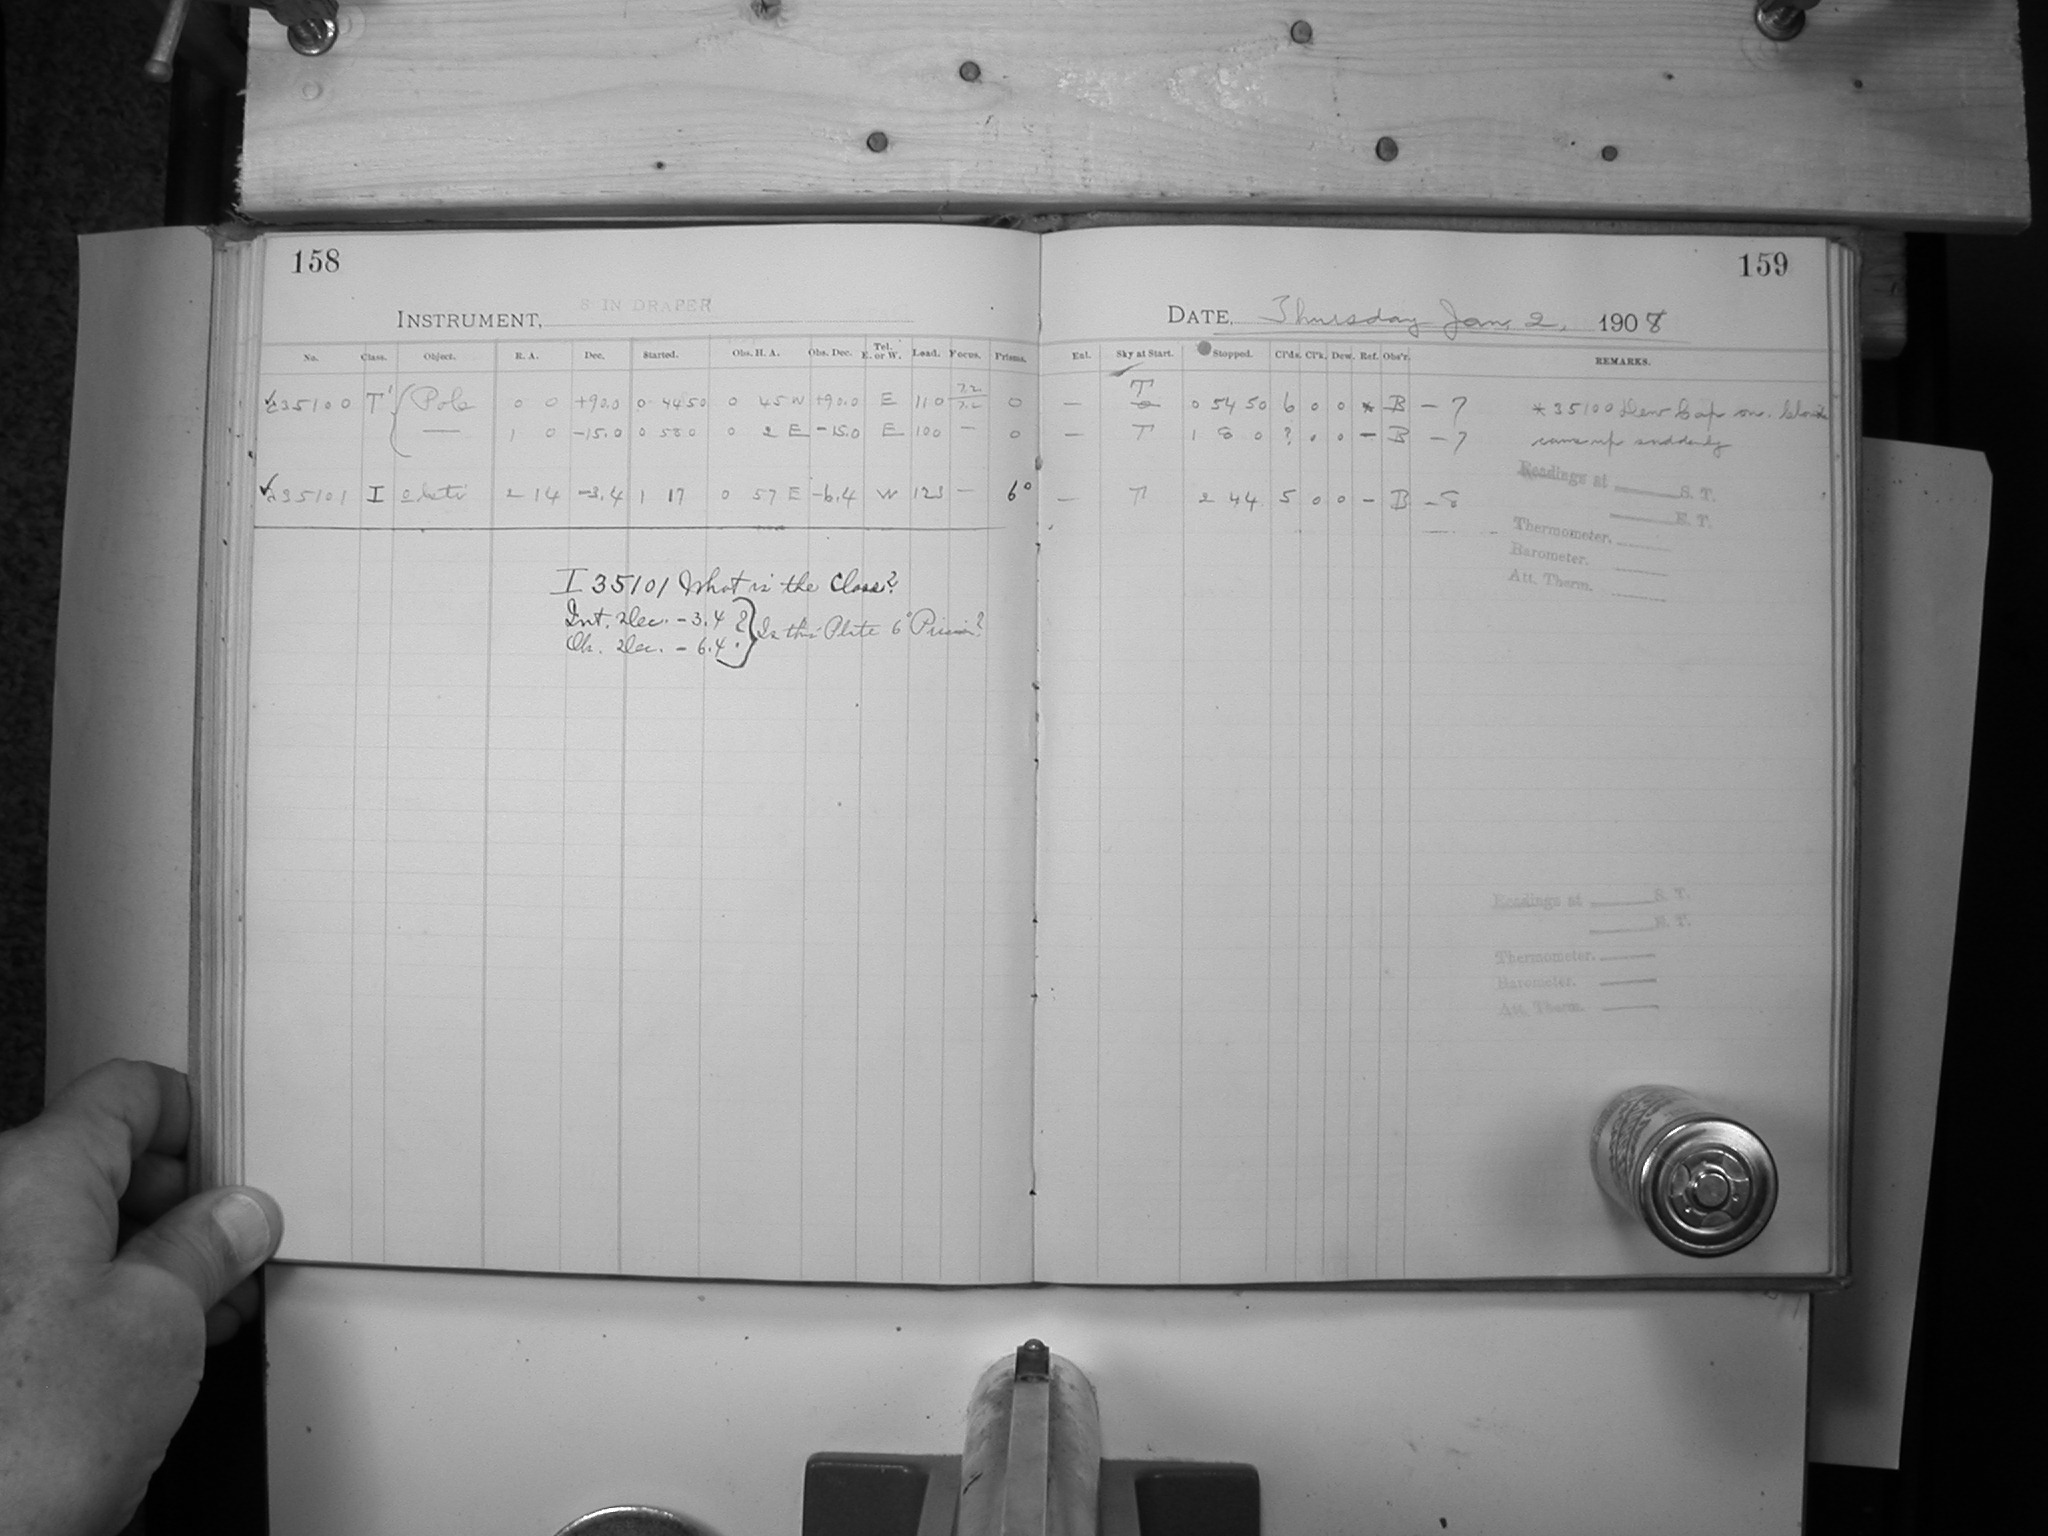 158
INSTRUMENT, 8 IN DRAPER
No. Class. Object. R. A. Dec. Started. Obs. H. A. Obs. Dec. Tel. E. or W. Load. Focus. Prisms.
35100 T' Pole 0 0 +90.0 0 44 50 0 45 W +90.0 E 110 7.2 7.2 0
— 1 0 -15.0 0 58 0 0 2 E -15.0 E 100 — 0
35101 I o Ceti 2 14 -3.4 1 17 0 57 E -6.4 W 123 — 6°
I 35101 What is the Class?
Int. Dec. - 3.4 ?
Ob. Dec. - 6.4 .
Is this Plate 6° Prism?
159
DATE, Thursday Jan. 2, 1908
Enl. Sky at Start. Stopped. Cl'ds. Cl'k. Dew. Ref. Obs'r. REMARKS.
— T 0 54 50 6 0 0 * B - 7 * 35100 Dew Cap on. Clouds
— T 1 8 0 ? 0 0 — B - 7 came up suddenly
— T 2 44 5 0 0 — B - 8
Readings at S. T.
E. T.
Thermometer.
Barometer.
Att. Therm.
Readings at S. T.
E. T.
Thermometer.
Barometer.
Att. Therm.